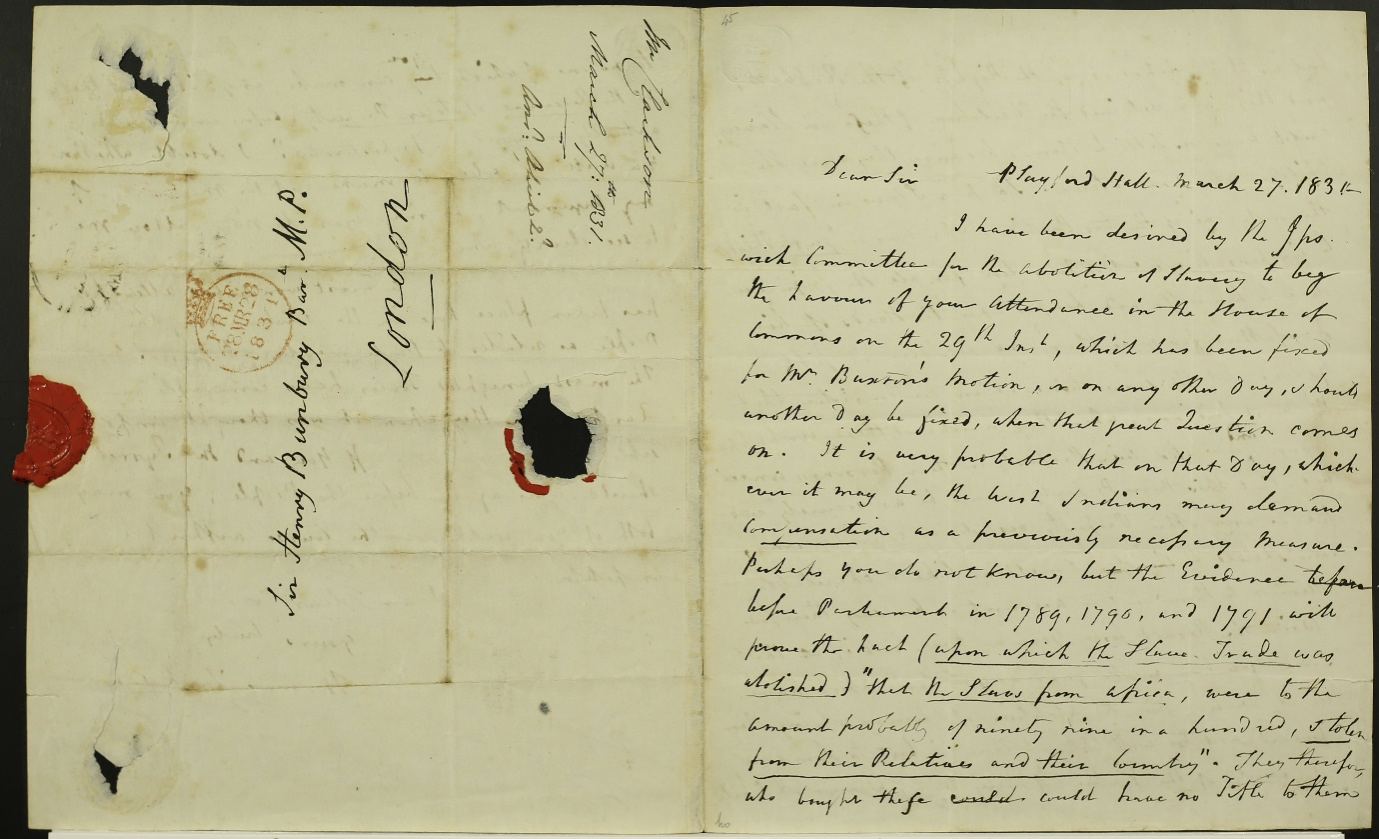 Mr Clarkson
March 27th 1831.
Ansd.
Sir Henry Bunbury Bart. M.P.
London
FREE
28 MR 28
1831
45
Dear Sir Playford Hall. March 27. 1831
I have been desired by the Ips
wich Committee for the abolition of Slavery to beg
the favour of your Attendance in the House of
Commons on the 29th Inst, which has been fixed
for Mr. Buxton's Motion, or on any other Day, should
another Day be fixed, when that great Question comes
on. It is very probable that on that Day, which-
ever it may be, the West Indians may demand
Compensation as a previously necessary Measure.
Perhaps you do not know, but the Evidence before
before Parliament in 1789, 1790, and 1791 will
prove the fact (upon which the Slave Trade was
abolished) "that the Slaves from Africa, were to the
amount probably of ninety nine in a hundred, stolen
from their Relatives and their Country". They therefore,
who bought these could could have no Title to them